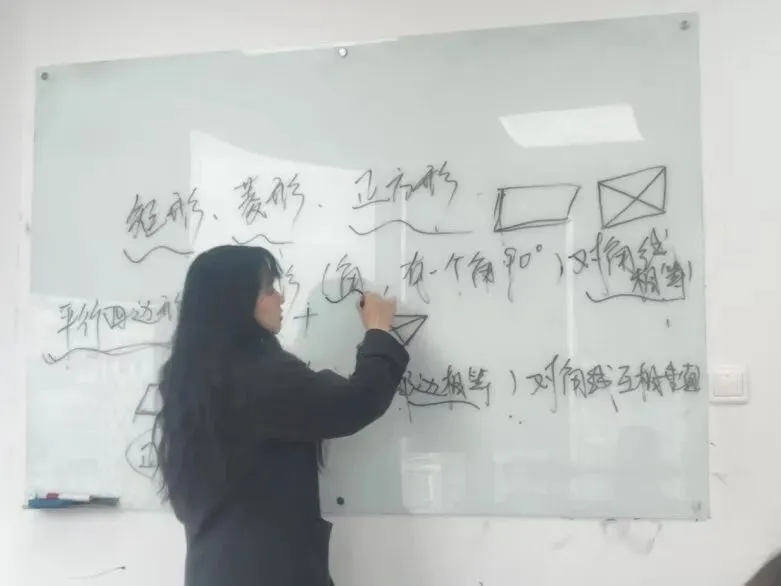 矩形、菱形、正方形
形 (角, 有一个角90°) 对角线相等
平行四边形 +
边相等) 对角线互相垂直
正